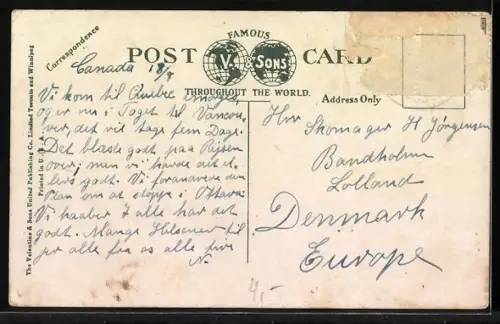 FAMOUS
POST CARD
V. & SONS
THROUGHOUT THE WORLD.
Correspondence
Address Only
The Valentine & Sons United Publishing Co. Limited Toronto and Winnipeg
Printed in
Canada 18/
Vi kom til Quebec imorges,
og er nu i Toget til Vancou-
ver, det vil tage fem Dage.
Det blæste godt paa Rejsen
over; men vi havde det el-
lers godt. Vi forandrede
Plan om at stoppe i Ottawa
Vi haaber I alle har det
godt. Mange Hilsener til
jer alle fra os alle
N.
Hrr Skomager H Jörgensen
Bandholm
Lolland
Denmark
Europe
4,-